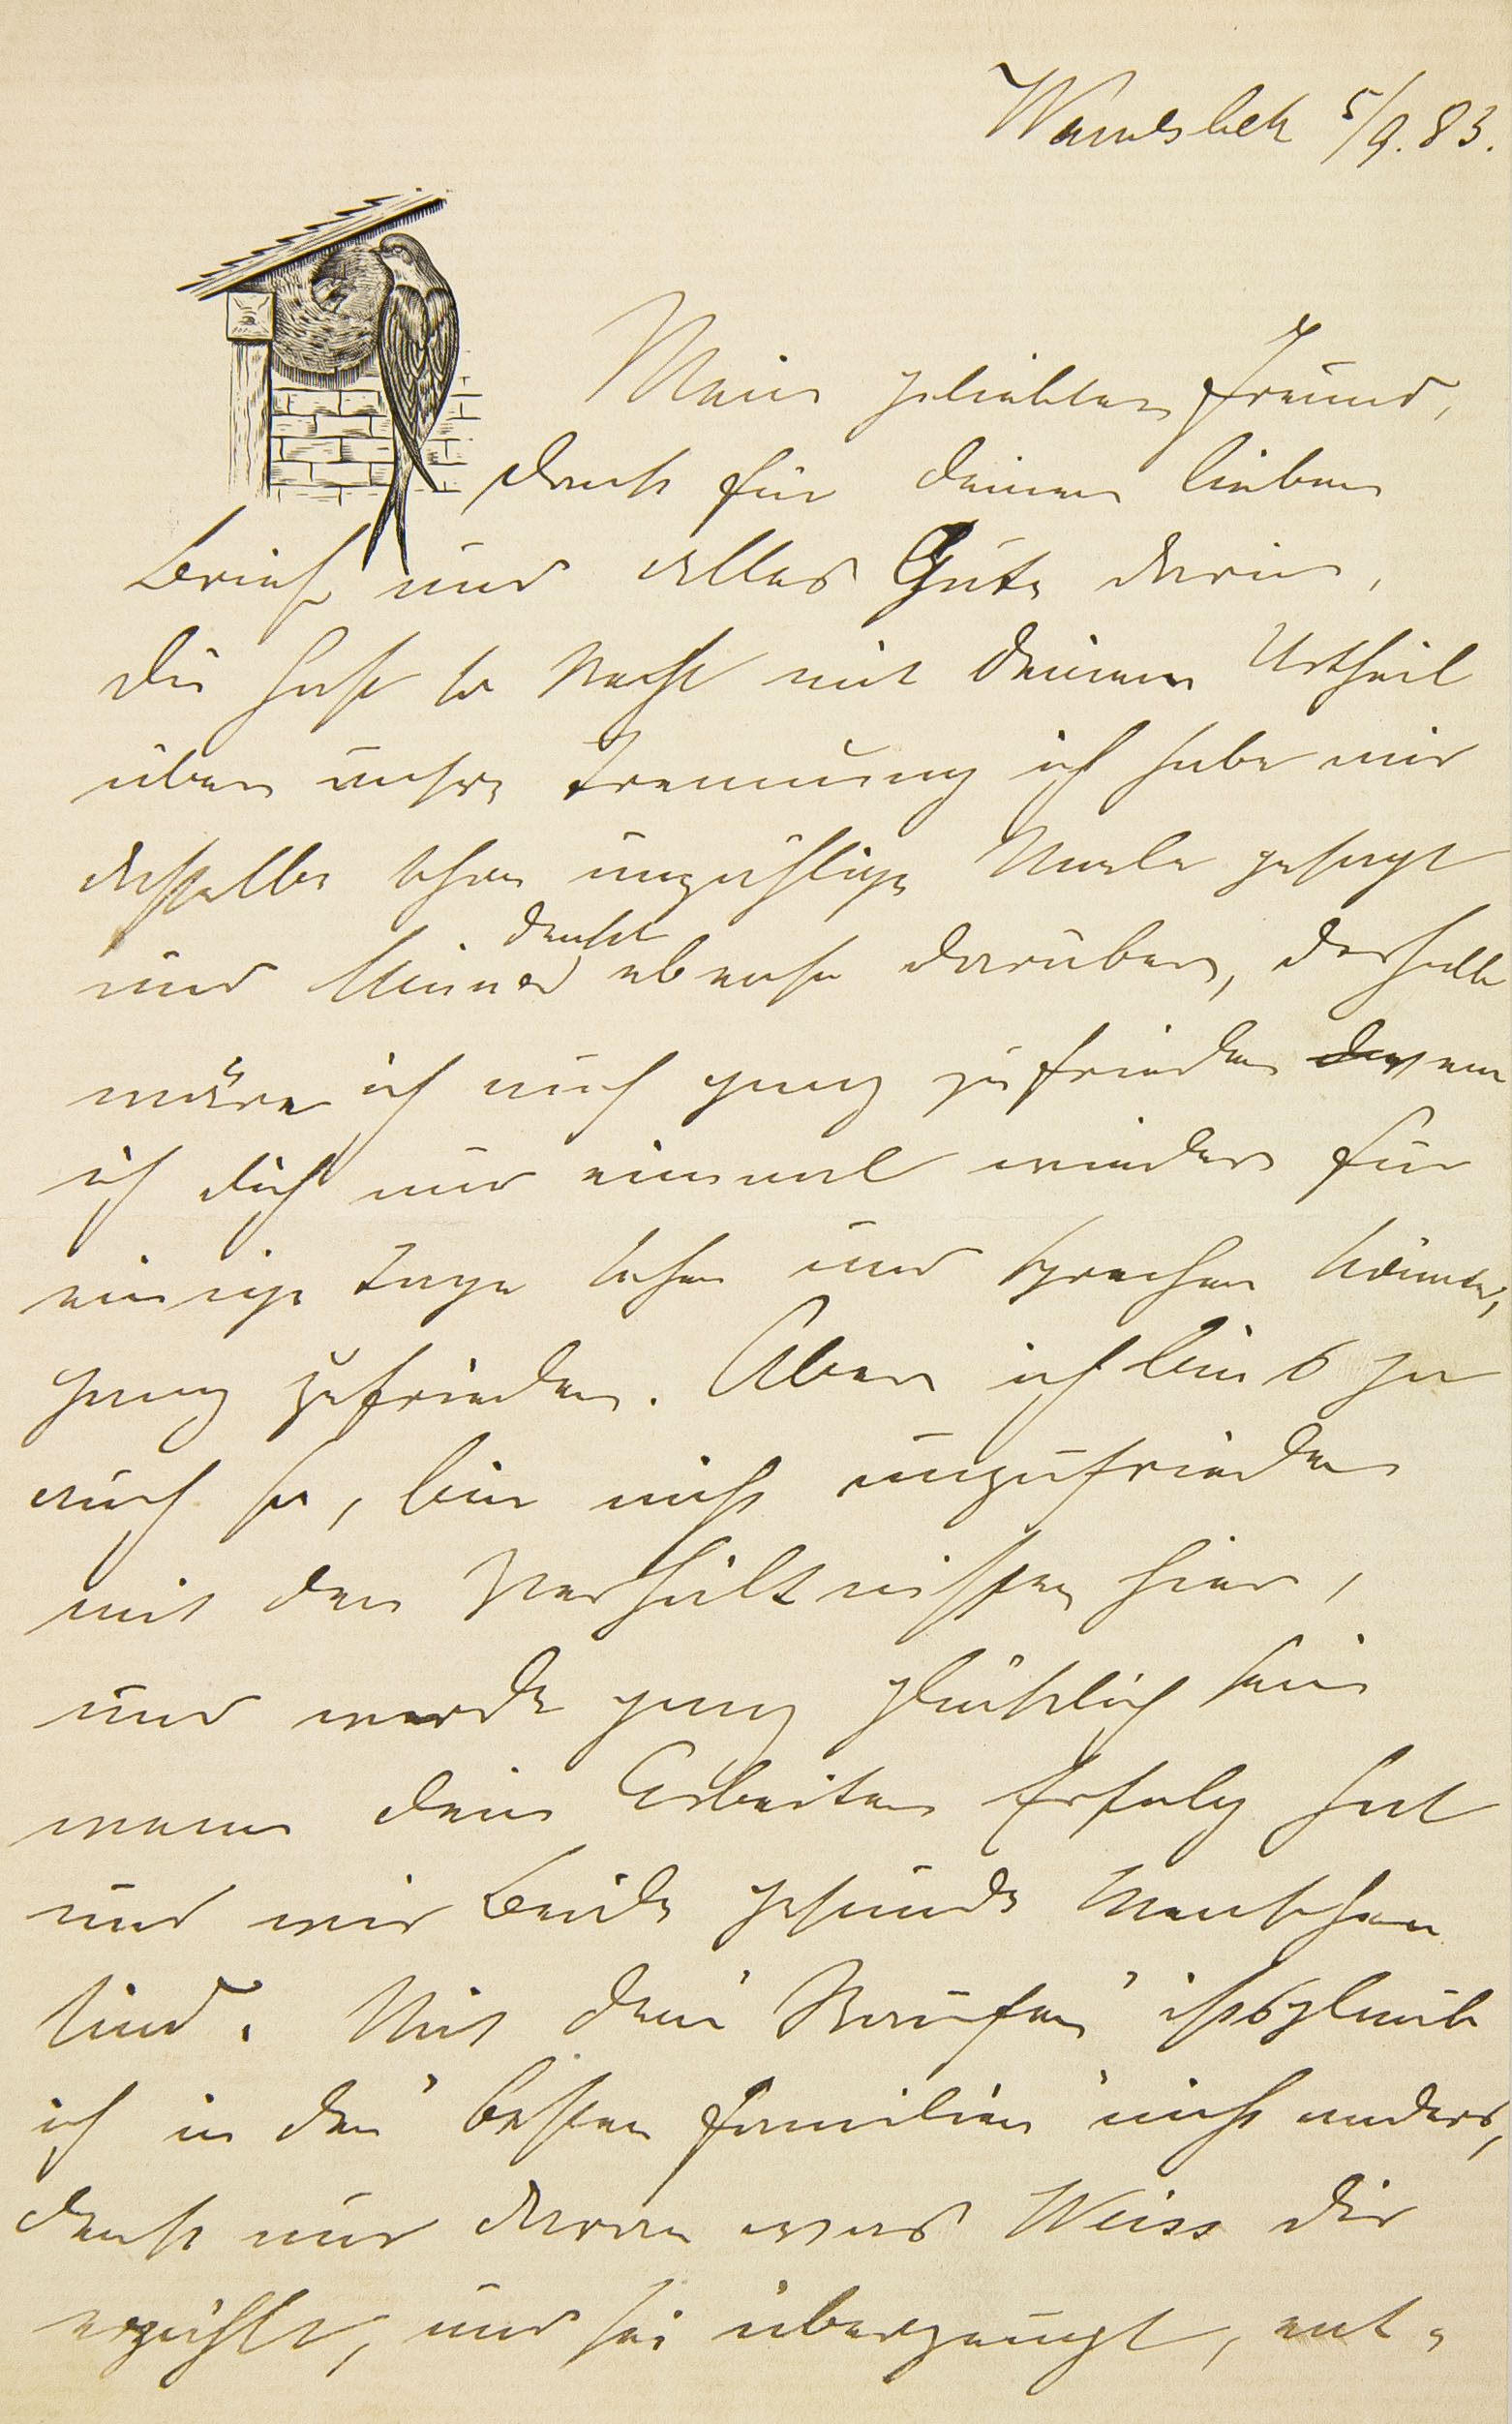 Wandsbek 5/9. 83.
Mein geliebter Freund,
dank für deinen lieben
Brief und alles Gute darin,
du hast so Recht mit deinem Urtheil
über unsre Trennung ich habe mir
dasselbe schon unzählige Male gesagt
und Minna denkt ebenso darüber, deshalb
wäre ich auch ganz zufrieden wenn
ich dich nur einmal wieder für
einige Tage sehen und sprechen könnte,
ganz zufrieden. Aber ich bins ja
auch so, bin nicht unzufrieden
mit den Verhältnissen hier,
und werde ganz glücklich sein
wenn dein Arbeiten Erfolg hat
und wir Beide gesunde Menschen
sind. Mit dem "Raufen" ists glaub
ich in den "besten Familien" nicht anders,
denk nur daran was Weiss dir
erzählt, und sei überzeugt, ent-